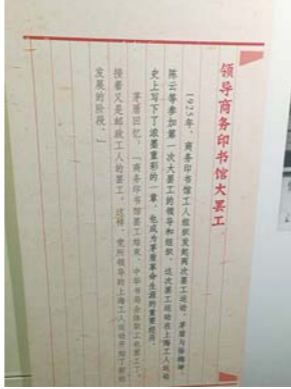 领导商务印书馆大罢工
1925年，商务印书馆工人组织发起两次罢工运动，茅盾与徐梅坤、
陈云等参加第一次大罢工的领导和组织。这次罢工运动在上海工人运动
史上写下了浓墨重彩的一章，也成为茅盾革命生涯的重要经历。
茅盾回忆，“商务印书馆罢工结束，中华书局全体职工也罢工了，
接着又是邮政工人的罢工。这样，党所领导的上海工人运动开始了新的
发展的阶段。”